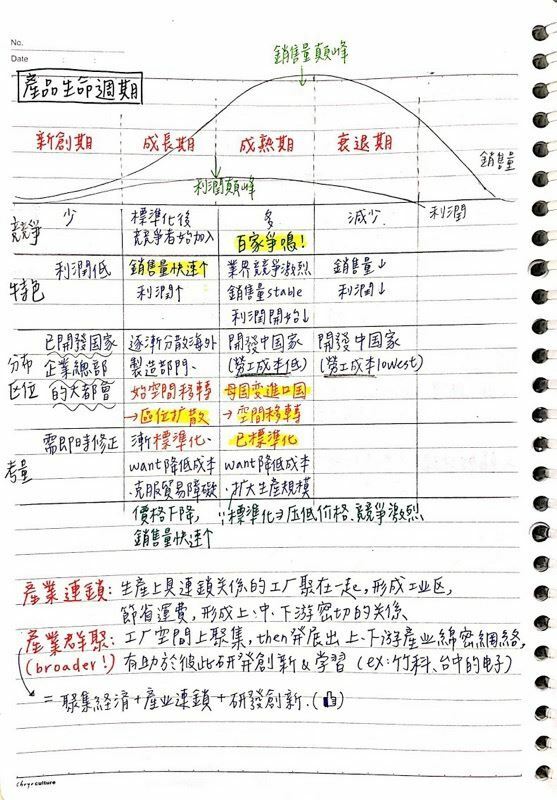 No.
Date
銷售量顛峰
產品生命週期
新創期 成長期 成熟期 衰退期
銷售量
利潤顛峰
利潤
競爭 少 標準化後 多 減少
競爭者始加入 百家爭鳴!
利潤低 銷售量快速↑ 業界競爭激烈 銷售量↓
特色 利潤↑ 銷售量stable 利潤↓
利潤開始↓
已開發国家 逐漸分散海外 開發中国家 開發中国家
分布 企業總部 製造部門、 (勞工成本低) (勞工成本lowest)
區位 的大都會 始空間移轉 母国变進口国
→區位扩散 →空間移轉
需即時修正 漸標準化、 已標準化
考量 want降低成本 want降低成本
、克服貿易障礙 、擴大生產規模
價格下降, ∵標準化→压低价格、競爭激烈
銷售量快速↑
產業連鎖: 生產上具連鎖关係的工厂聚在一起,形成工业区,
節省運費,形成上、中、下游密切的关係
產業群聚: 工厂空間上聚集,then發展出上、下游產业綿密網絡,
(broader!) 有助於彼此研發創新&学習 (ex:竹科、台中的电子)
= 聚集經済+產业連鎖+研發創新.